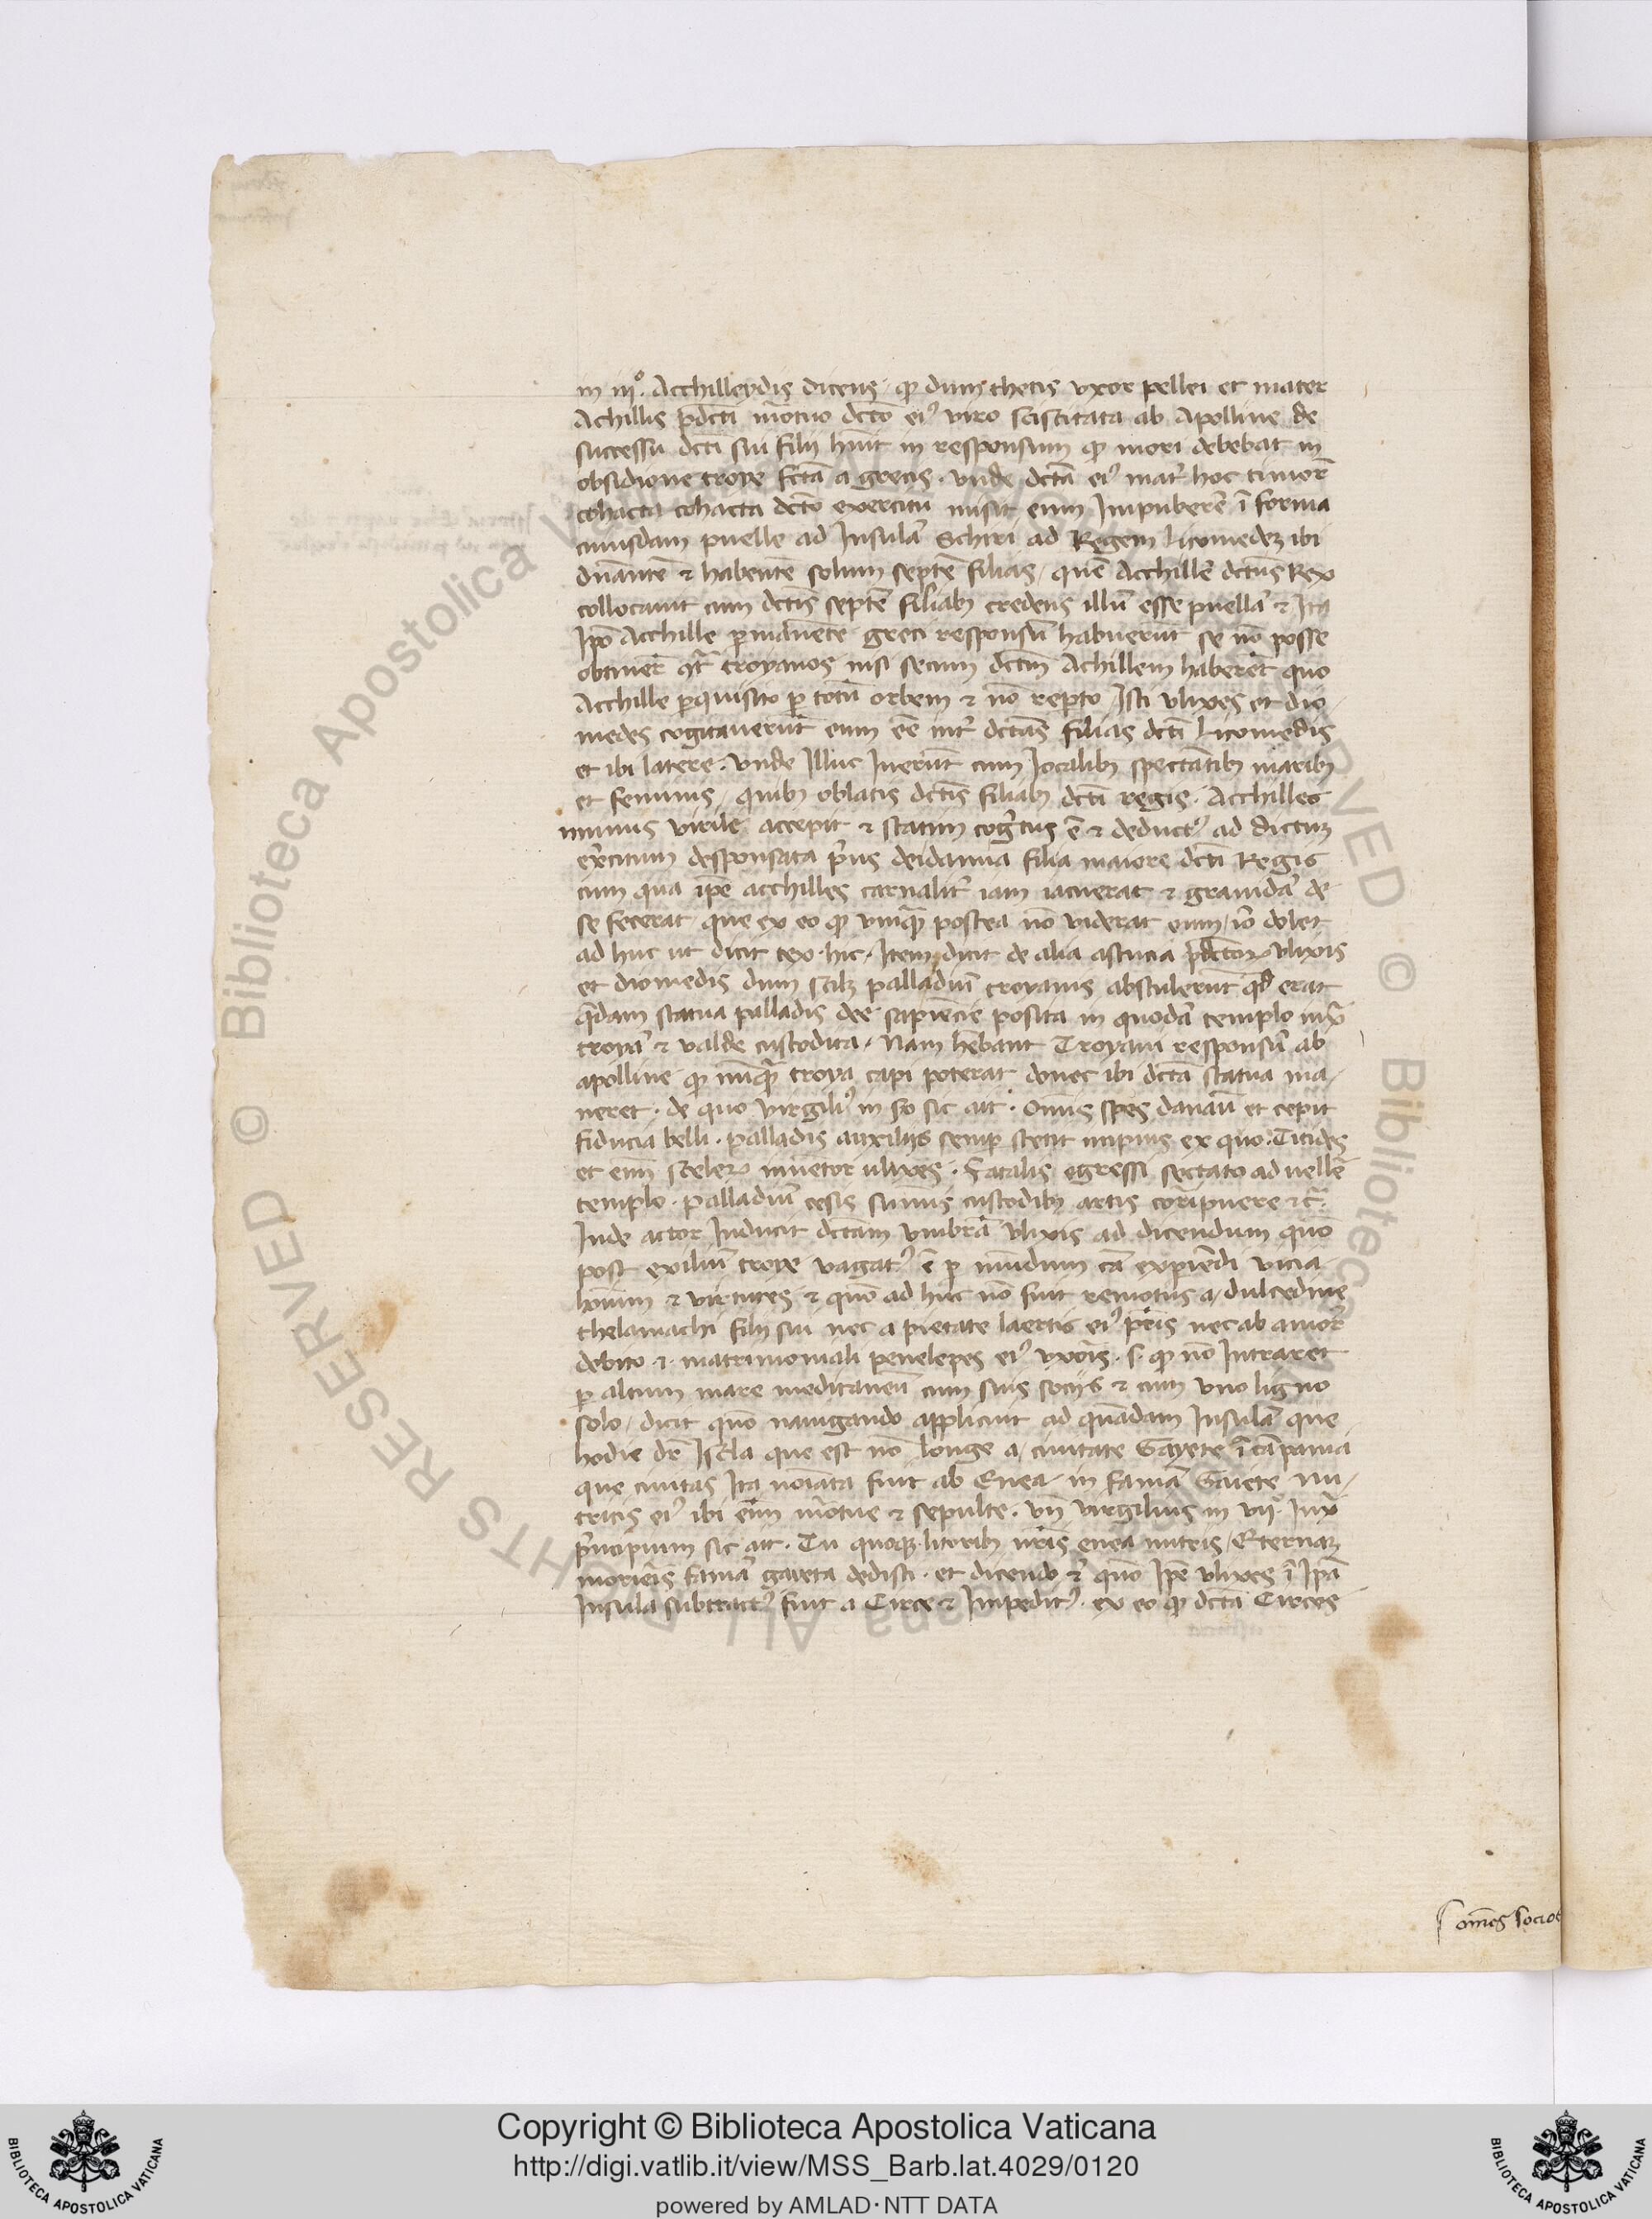 in iij.º Acchilleydis dicens · qd dum thetis uxor pellei et mater
Achillis pdcti mortuo dcto ei9 viro sciscitata ab Apolline de
successu dcti sui filij huit in responsum qd mori debebat in
obsidione troye fctā a grecis · vnde dctā ei9 mat̄ hoc timor̄
cohacta cohacta dcto exercitu misit eum Impuberē ī forma
cuiusdam puelle ad Insulā Schiri ad Regem licomedeʒ ibi
dnantē & habentē solum septē filias / quē Acchillē dctus Rex
collocauit cum dctis septē filiabʒ credens illū esse puellā & Ita
Ipō Acchille pmanentē greci responsū habuerūt se nō posse
obtiner̄ 9t̄ troyanos nisi secum dctm Achillem haberēt quo
Acchille pquisito p totū orbem & nō repto Isti vlixes et dio-
medes cogitauerūt eum eē int̄ dctas filias dcti licomedis
et ibi latere · vnde Illuc Iuerūt cum Iocalibʒ spectātibʒ maribʒ
et feminis / quibʒ oblatis dctis filiabʒ dcti regis · Acchilles
munus virile accepit & statim cogtus ē & deduct9 ad dictuʒ
exercitum desponsata prius deidamia filia maiore dcti Regis
cum qua ipe acchilles carnalit̄ iam iacuerat & grauidā de
se fecerat que ex eo qd vnq̄ postea nō viderat eum / iō dolet
ad huc ut dicit tex · hic · Item dicit de alia astucia pdctorꝝ vlixis
et diomedis dum scilʒ palladiū troyanis abstulerūt qd erat
qdam statua palladis dee sapiencie posita in quodā templo iux̄
troyā & valde custodita · Nam hēbant Troyani responsū ab
apolline qd nūq̄ troya capi poterat donec ibi dcta statua ma-
neret · de quo virgili9 in so sic ait · Omīs spes danaū et cepit
fiducia belli · palladis auxilijs semp stetit impius ex quo · Titides
et eim scelerꝝ inuētor ulixes · Fatalis egressi sectato ad uellē
templo · palladiū cesis sumis custodibʒ artis coripuere & c̄ ·
Inde actor Inducit dctam vmbrā vlixis ad dicendum quō
post exiliū troye vagat9 ē p mūdum cā expiēdi vicia
hoium & virtutes & quō ad huc nō fuit remotus a dulcedine
thelamachi filij sui nec a pietate laertis ei9 pris nec ab amor̄
debito & matrimoniali penelepes ei9 vxoris · s · qd nō Intraret
p altum mare meditaneū cum suis socijs & cum vno ligno
solo / dicit quō nauigando applicuit ad quādam Insulā que
hodie dr̄ Iscla que est nō longe a ciuitate Gayete ī cāpania
que ciuitas Ita noiata fuit ab Enea in famā Gaiete nu-
tricis ei9 ibi eim mortue & sepulte · vn̄ virgilius in vij · iux̄
principium sic ait · Tu quoqʒ litoribʒ nris enea nutris / Eternaʒ
moriēs famā gaieta dedisti · et dicendo & quō Ipē vlixes ī Ipā
Insula subtract9 fuit a Circe & Impedit9 · ex eo qd dctā Circes
omēs socios
Copyright © Biblioteca Apostolica Vaticana
http://digi.vatlib.it/view/MSS_Barb.lat.4029/0120
powered by AMLAD·NTT DATA
BIBLIOTECA APOSTOLICA VATICANA
BIBLIOTECA APOSTOLICA VATICANA
© Biblioteca Apostolica Vaticana ALL RIGHTS RESERVED